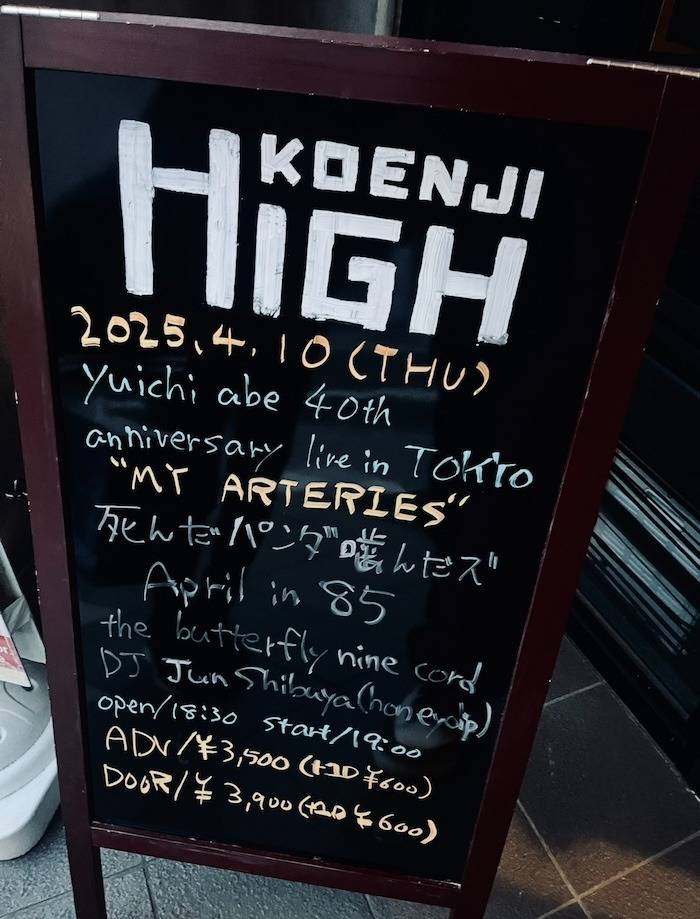 KOENJI
HIGH
2025.4.10 (THU)
Yuichi abe 40th
anniversary live in TOKYO
"MY ARTERIES"
死んだパンダ噛んだズ
April in 85
the butterfly nine cord
DJ Jun Shibuya (honeydip)
open/18:30 start/19:00
ADV/¥3,500 (+1D ¥600)
DOOR/¥3,900 (+1D ¥600)